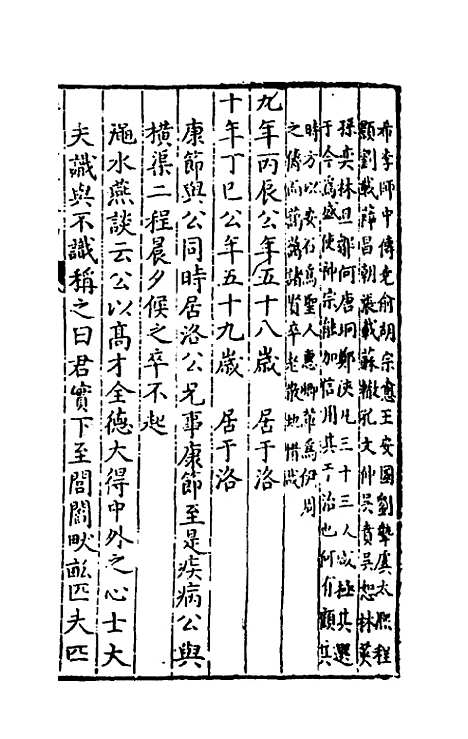 希李師中傅堯俞胡宗愈王安國劉摯虞太熙程
顥劉載薛昌朝張載蘇轍孔文仲吳賁吳恕林英
孫奕林旦鄒何唐坰鄭俠凡三十三人成極其選
于今爲盛使神宗能加信用其工治也何有顧其
時方以安石爲聖人惠卿輩爲伊周
之儔而藹藹諸賢卒老散地惜哉
九年丙辰公年五十八歲 居于洛
十年丁巳公年五十九歲 居于洛
康節與公同時居洛公兄事康節至是疾病公與
橫渠二程晨夕候之卒不起
澠水燕談云公以高才全德大得中外之心士大
夫識與不識稱之曰君實下至閭閻畎畝匹夫匹